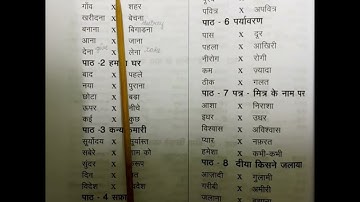 गाँव X शहर
खरीदना X बेचना
बनाना X बिगाड़ना
आना X जाना
देना X लेना
पाठ -2 हमारा घर
बाद X पहले
नया X पुराना
छोटा X बड़ा
ऊपर X नीचे
कई X कुछ
पाठ -3 कन्याकुमारी
सूर्योदय X सूर्यास्त
सबेरे X शाम को
सुंदर X
दिन X
विदेश X
पाठ - 4
पवित्र X अपवित्र
पाठ - 6 पर्यावरण
पास X दूर
पहला X आखिरी
नीरोग X रोगी
कम X ज़्यादा
ठीक X गलत
पाठ - 7 पत्र - मित्र के नाम पर
आशा X निराशा
इधर X उधर
विश्वास X अविश्वास
प्यार X नफ़रत
हमेशा X कभी-कभी
पाठ - 8 दीया किसने जलाया
आज़ादी X गुलामी
गरीबी X अमीरी
जलाना X बुझाना